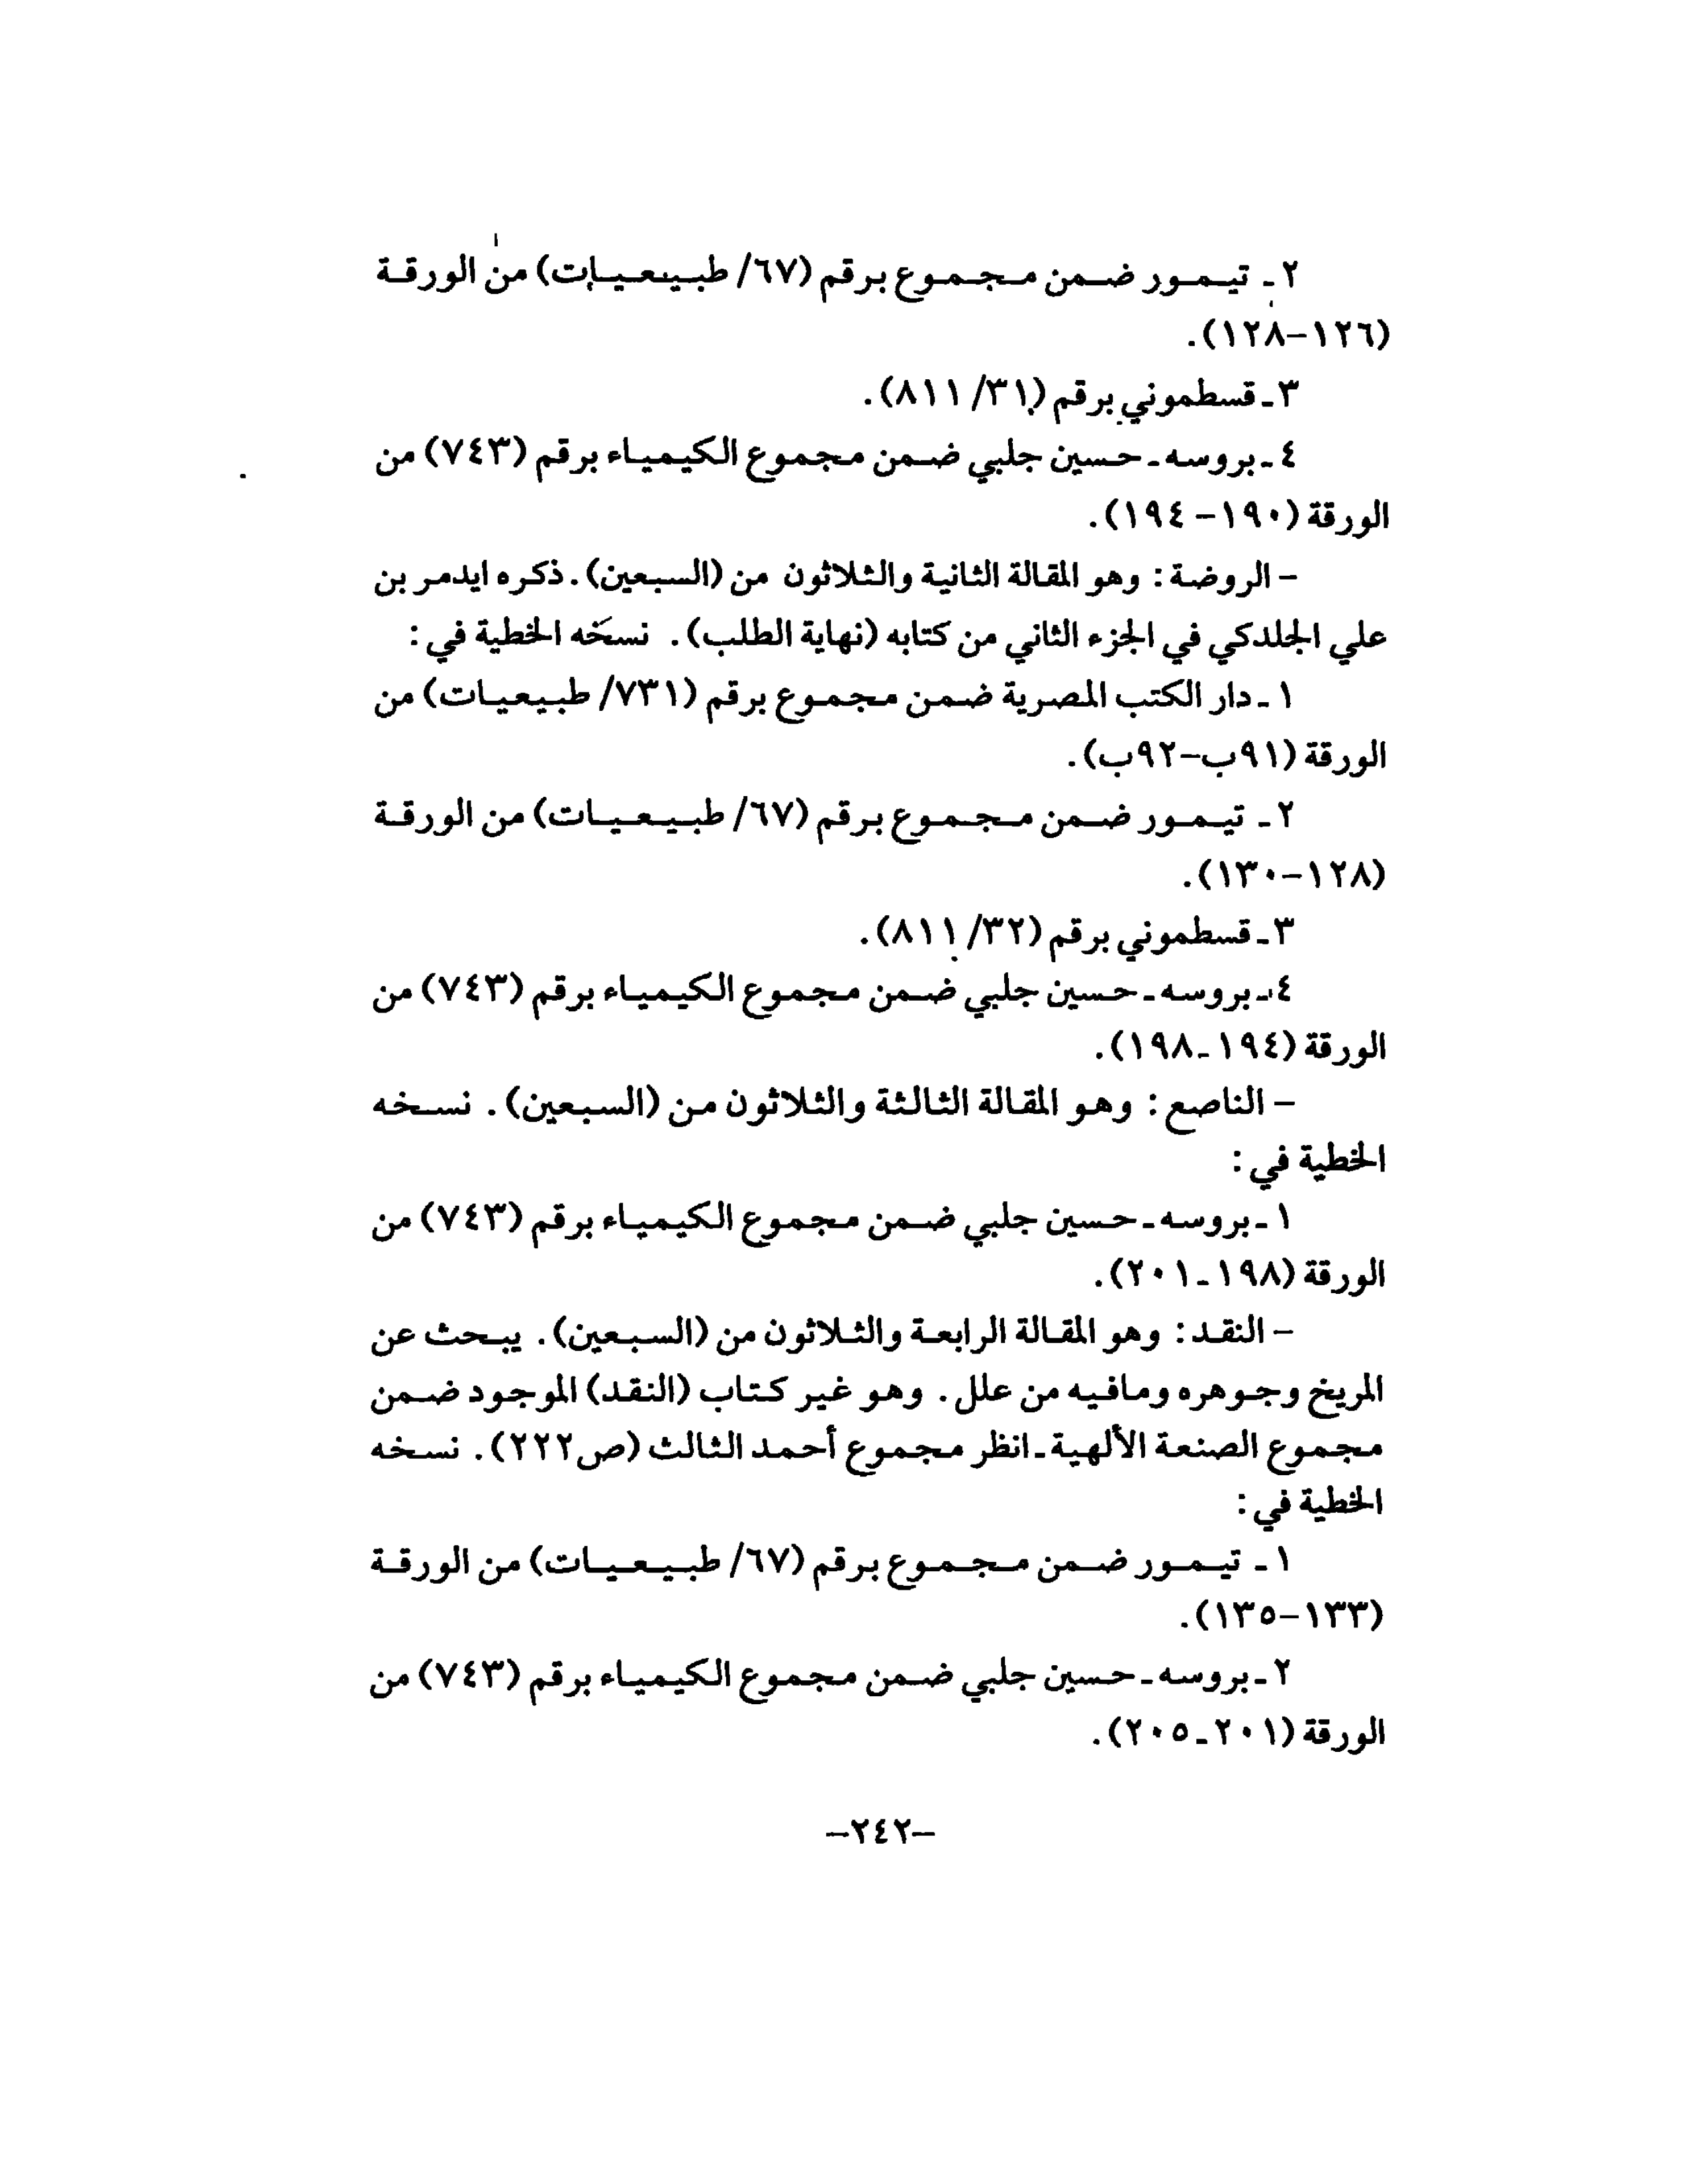 ٢ ـ تيمور ضمن مجموع برقم (٦٧/ طبيعيات) من الورقة
(١٢٦–١٢٨).
٣ ـ قسطموني برقم (٣١/ ٨١١).
٤ ـ بروسه ـ حسين جلبي ضمن مجموع الكيمياء برقم (٧٤٣) من
الورقة (١٩٠– ١٩٤).
– الروضة : وهو المقالة الثانية والثلاثون من (السبعين). ذكره ايدمر بن
علي الجلدكي في الجزء الثاني من كتابه (نهاية الطلب). نسخه الخطية في :
١ ـ دار الكتب المصرية ضمن مجموع برقم (٧٣١/ طبيعيات) من
الورقة (٩١ب–٩٢ب).
٢ ـ تيمور ضمن مجموع برقم (٦٧/ طبيعيات) من الورقة
(١٢٨–١٣٠).
٣ ـ قسطموني برقم (٣٢/ ٨١١).
٤ ـ بروسه ـ حسين جلبي ضمن مجموع الكيمياء برقم (٧٤٣) من
الورقة (١٩٤ـ١٩٨).
– الناصع : وهو المقالة الثالثة والثلاثون من (السبعين). نسخه
الخطية في :
١ ـ بروسه ـ حسين جلبي ضمن مجموع الكيمياء برقم (٧٤٣) من
الورقة (١٩٨ـ٢٠١).
– النقد : وهو المقالة الرابعة والثلاثون من (السبعين). يبحث عن
المريخ وجوهره ومافيه من علل. وهو غير كتاب (النقد) الموجود ضمن
مجموع الصنعة الألهية ـ انظر مجموع أحمد الثالث (ص٢٢٢). نسخه
الخطية في :
١ ـ تيمور ضمن مجموع برقم (٦٧/ طبيعيات) من الورقة
(١٣٣–١٣٥).
٢ ـ بروسه ـ حسين جلبي ضمن مجموع الكيمياء برقم (٧٤٣) من
الورقة (٢٠١ـ٢٠٥).
–٢٤٢–